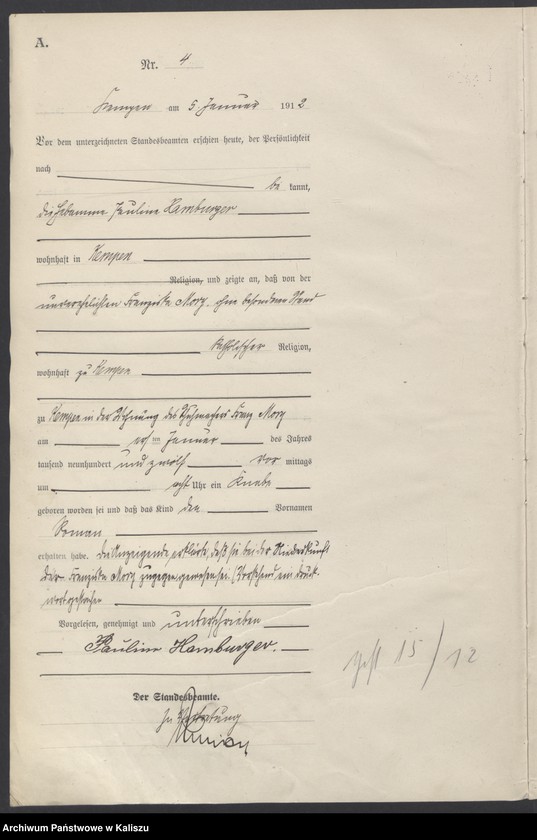 A.
Nr. 4
Kempen am 5. Januar 1912
Vor dem unterzeichneten Standesbeamten erschien heute, der Persönlichkeit
nach
be kannt,
die Hebamme Pauline Hamburger
wohnhaft in Kempen
Religion, und zeigte an, daß von der
unverehelichten Franziska Morz, ohne besonderen Stand
katholischer Religion,
wohnhaft zu Kempen
zu Kempen in der Wohnung des Schuhmachers Franz Morz
am ersten Januar des Jahres
tausend neunhundert und zwölf Vor mittags
um acht Uhr ein Knabe
geboren worden sei und daß das Kind den Vornamen
Roman
erhalten habe. Die Anzeigende erklärte, daß sie bei der Niederkunft
der Franziska Morz zugegen gewesen sei. (Vorstehend ein Druck-
wort gestrichen
Vorgelesen, genehmigt und unterschrieben
Pauline Hamburger.
Der Standesbeamte.
In Vertretung
15/12
Archiwum Państwowe w Kaliszu